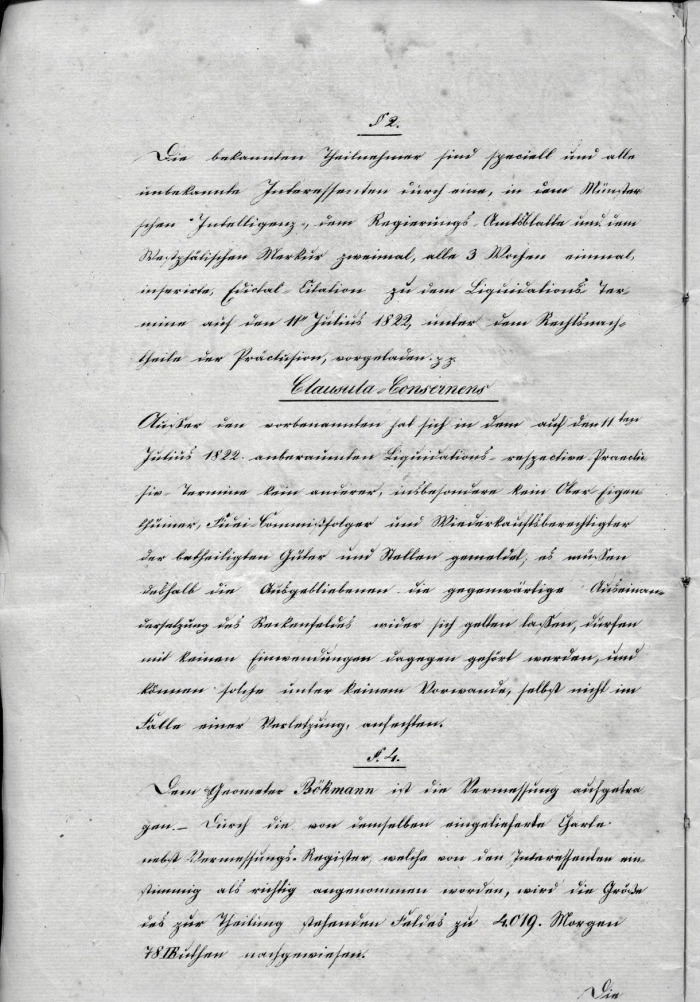 § 2.
Die bekannten Theilnehmer sind speciell und alle
unbekannte Interessenten durch eine, in dem Münster
schen Intelligenz-, dem Regierungs Amtsblatte und dem
Westphälischen Merkur zweimal, alle 3 Wochen einmal,
inserirte, Edictal-Citation zu dem Liquidations Ter-
mine auf den 11 Julius 1822, unter dem Rechtsnach-
theile der Präclusion, vorgeladen. pp.
Clausula-Consernens
Außer den vorbenannten hat sich in dem auf den 11ten
Julius 1822. anberaumten Liquidations- respective Praeclu
siv- Termine kein anderer, insbesondere kein Ober Eigen
thümer, Fidei-Commißfolger und Wiederkaufsberechtigter
der betheiligten Güter und Stellen gemeldet; es müßen
deshalb die Ausgebliebenen die gegenwärtige Auseinan-
dersetzung des Reckenfeldes wider sich gelten laßen, dürfen
mit keinen Einwendungen dagegen gehört werden, und
können solche unter keinem Vorwande, selbst nicht im
Falle einer Verletzung, anfechten.
§. 4.
Dem Geometer Bökmann ist die Vermessung aufgetra
gen. – Durch die von demselben eingelieferte Charte
nebst Vermessungs-Register, welche von den Interessenten ein-
stimmig als richtig angenommen worden, wird die Größe
des zur Theilung stehenden Feldes zu 4019. Morgen
78 Ruthen nachgewiesen.
Die